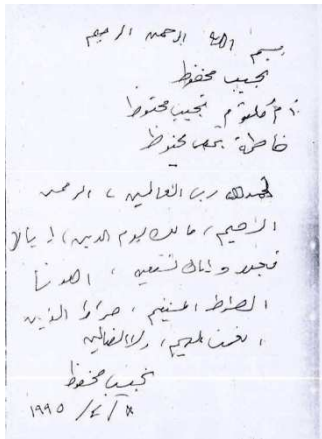 بسم الله الرحمن الرحيم
نجيب محفوظ
أم كلثوم نجيب محفوظ
فاطمة نجيب محفوظ
الحمد لله رب العالمين، الرحمن
الرحيم، مالك يوم الدين، إياك
نعبد وإياك نستعين، اهدنا
الصراط المستقيم، صراط الذين
أنعمت عليهم، ولا الضالين
نجيب محفوظ
١٩٩٥/٤/